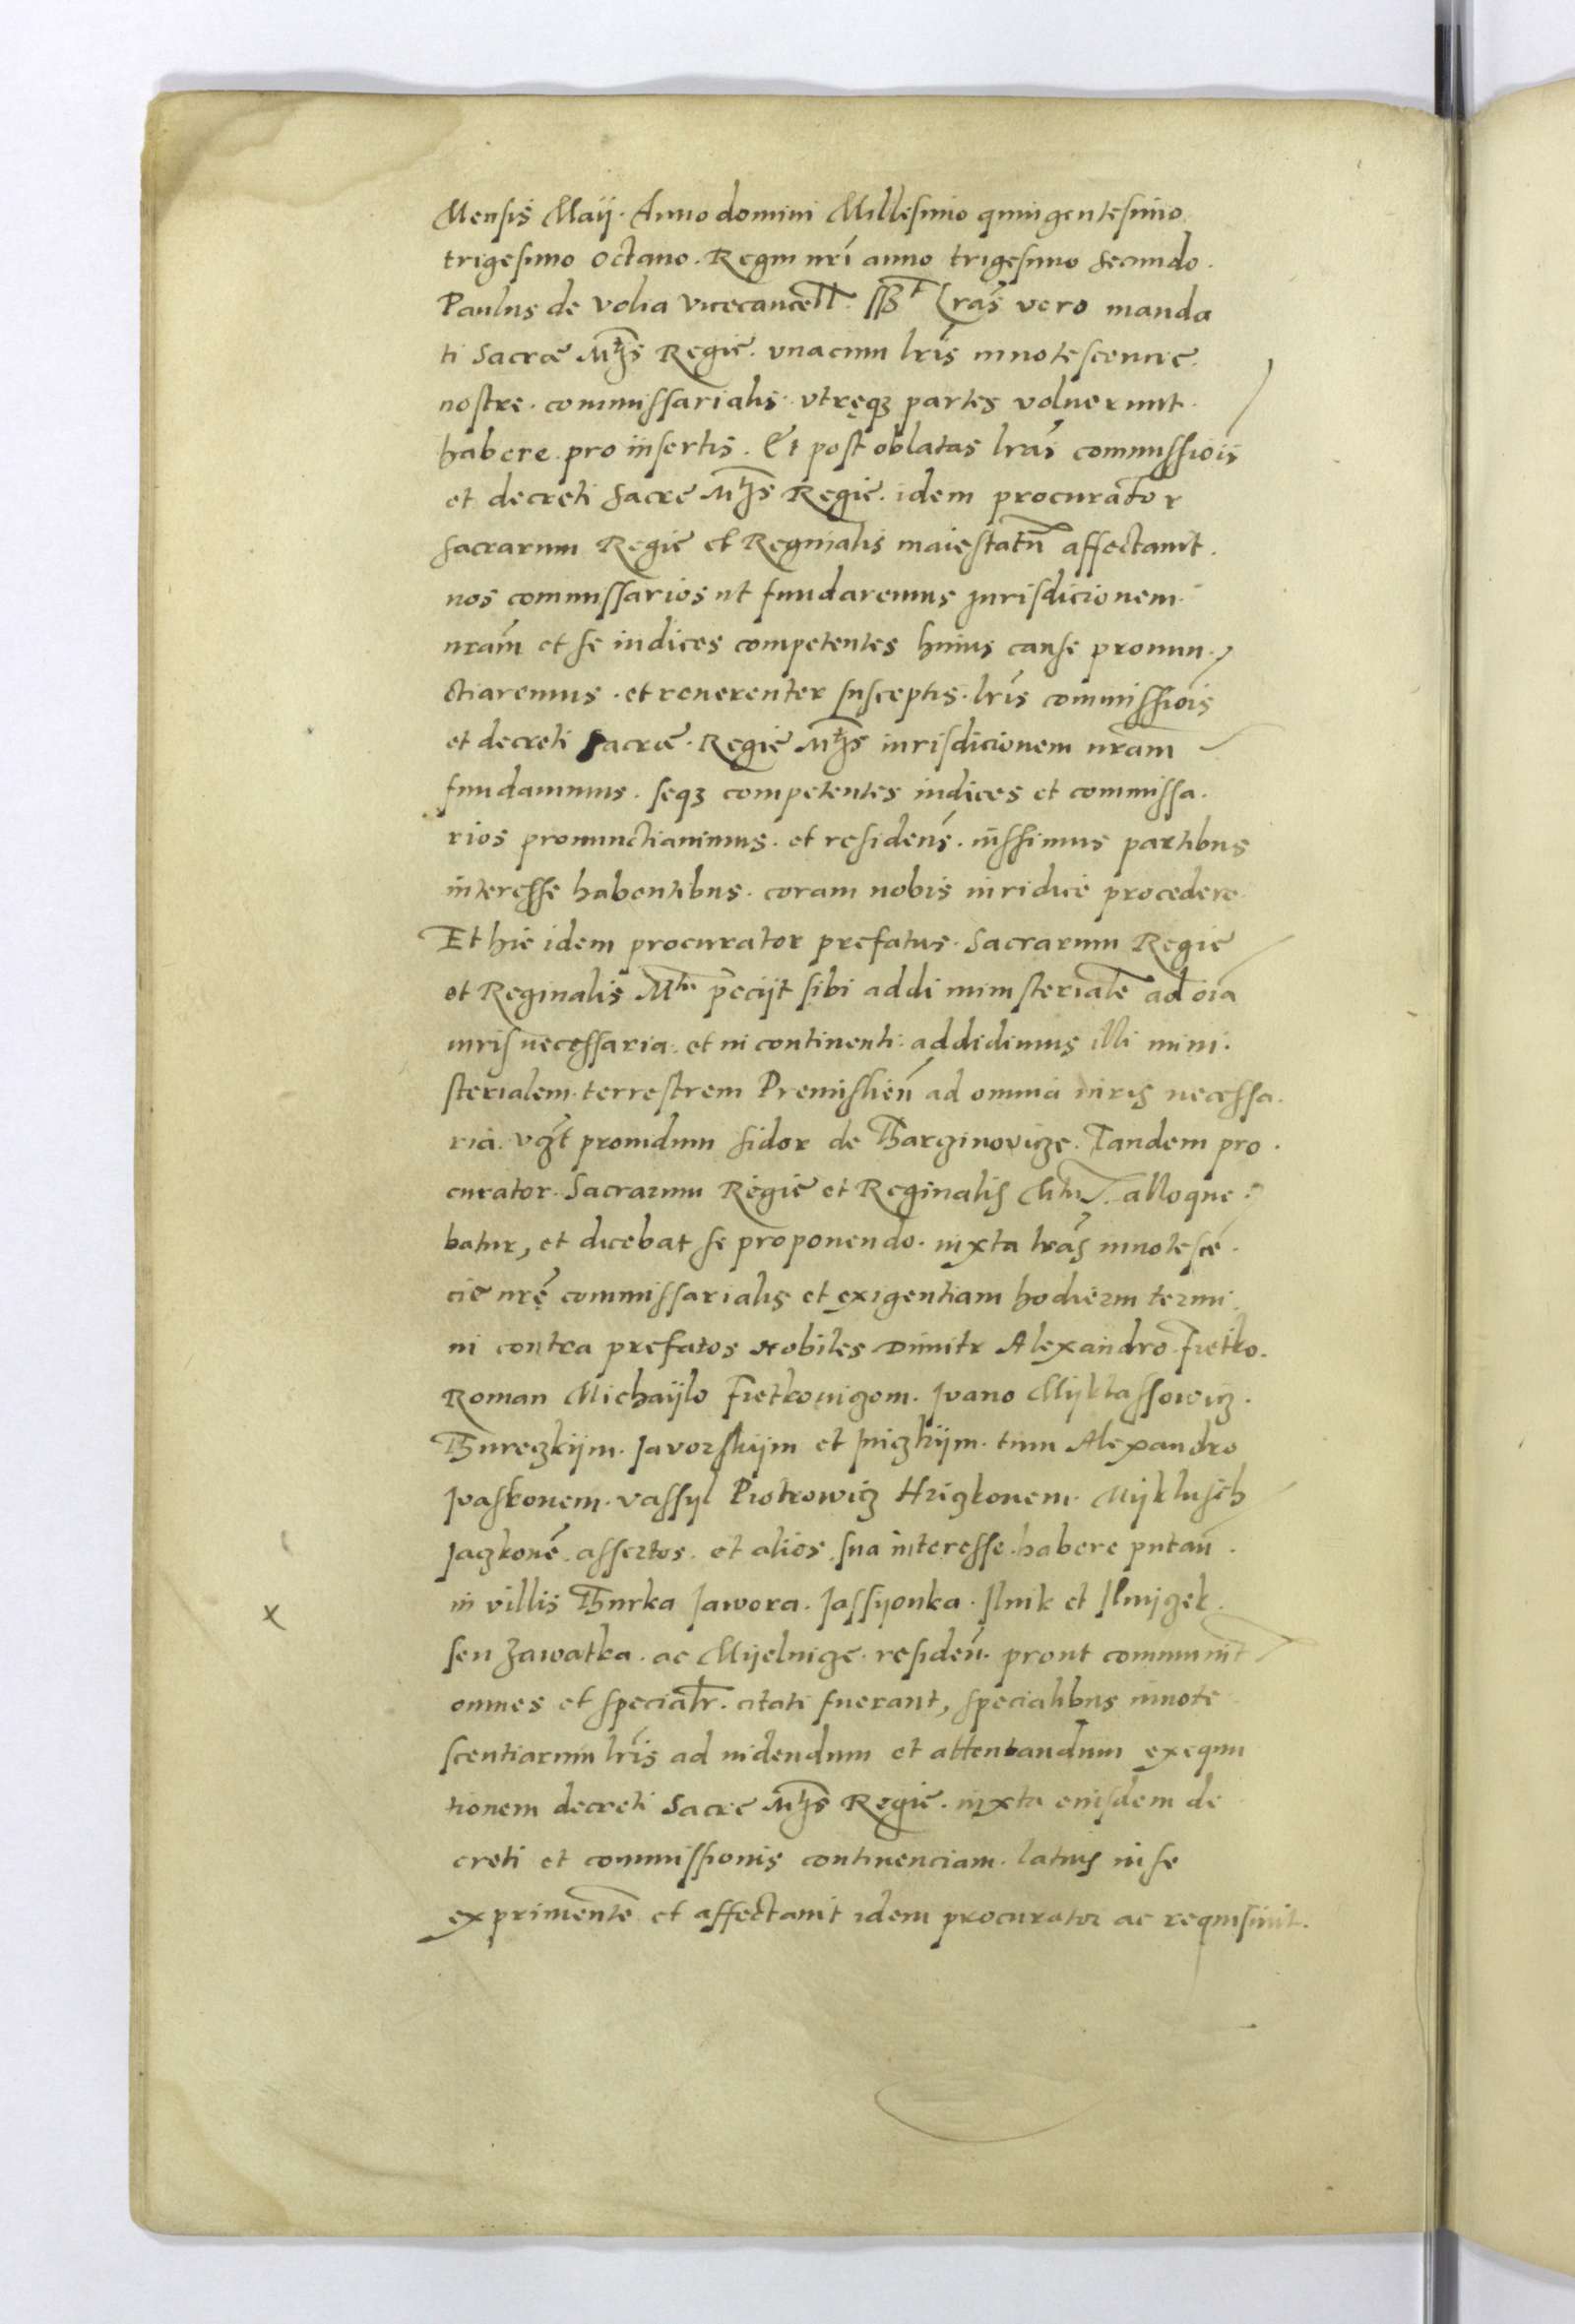 Mensis Maij. Anno domini Millesimo quingentesimo
trigesimo octavo. Regni nrī anno trigesimo secundo.
Paulus de Volia Vicecancell. sst Lrās vero manda
ti Sacrae Mtis Regie. unacum lrīs innotescencie
nostre. commissarialis. utręqȝ partes voluerunt.
habere. pro insertis. Et post oblatas lrās commissiōis
et decreti Sacre Mtis Regie. idem procurator
sacrarum Regie et Reginalis maiestatū affectavit.
nos commissarios ut fundaremus jurisdicionem
nrām et se iudices competentes huius causę pronun
ctiaremus. et reverenter susceptis. lrīs commissiōis
et decreti sacrae. Regie Mtis iurisdicionem nrām
fundavimus. seqȝ competentes iudices et commissa.
rios pronunctiavimus. et residens. iussimus partibus
interesse habentibus. coram nobis iuridice procedere
Et hic idem procurator prefatus. Sacrarum Regie
et Reginalis Mtū peciit sibi addi ministeriale ad oīa
iuris necessaria. et in continenti. addidimus illi mini.
sterialem. terrestrem Premislien ad omnia iuris necessa.
ria. vȝt providum Sidor de Tharzinovicze. Tandem pro.
curator. Sacrarum Regie et Reginalis Mtu. alloque
batur, et dicebat se proponendo. iuxta lrās innotescē.
cie nrę commissarialis et exigentiam hodierni termi
ni contra prefatos Nobiles Dimitr Alexandro Fietko.
Roman Michaijlo Fietkowiczom. Jvano Mijklassowicz.
Thureczkijm. Javorskijm et Jniczkijm. tum Alexandro
Jvaskonem. Vassyl Piotrowicz Hriczkonem. Mijklusch
Jaczkonē. assertos. et alios sua interesse. habere putan.
in villis Thurka Jawora. Jassyonka. Jlnik et Jlnijczek.
seu Zawatka. ac Mijelnicze. residen. prout communit
omnes et specialr. citati fuerant, specialibus innote
scentiarum lrīs ad videndum et attentandum exequu
tionem decreti Sacre Mtis Regie. iuxta eiusdem de
creti et commissionis continenciam. latius in se
exprimente et affectavit idem procurator ac requisivit.
x